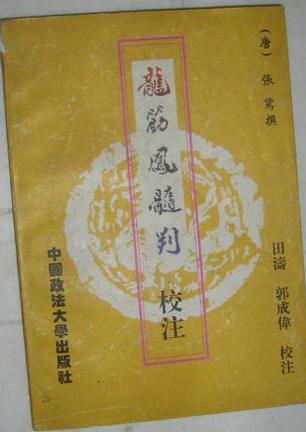 (唐) 張鷟撰
龍筋鳳髓判
校注
田濤 郭成偉 校注
中國政法大學出版社